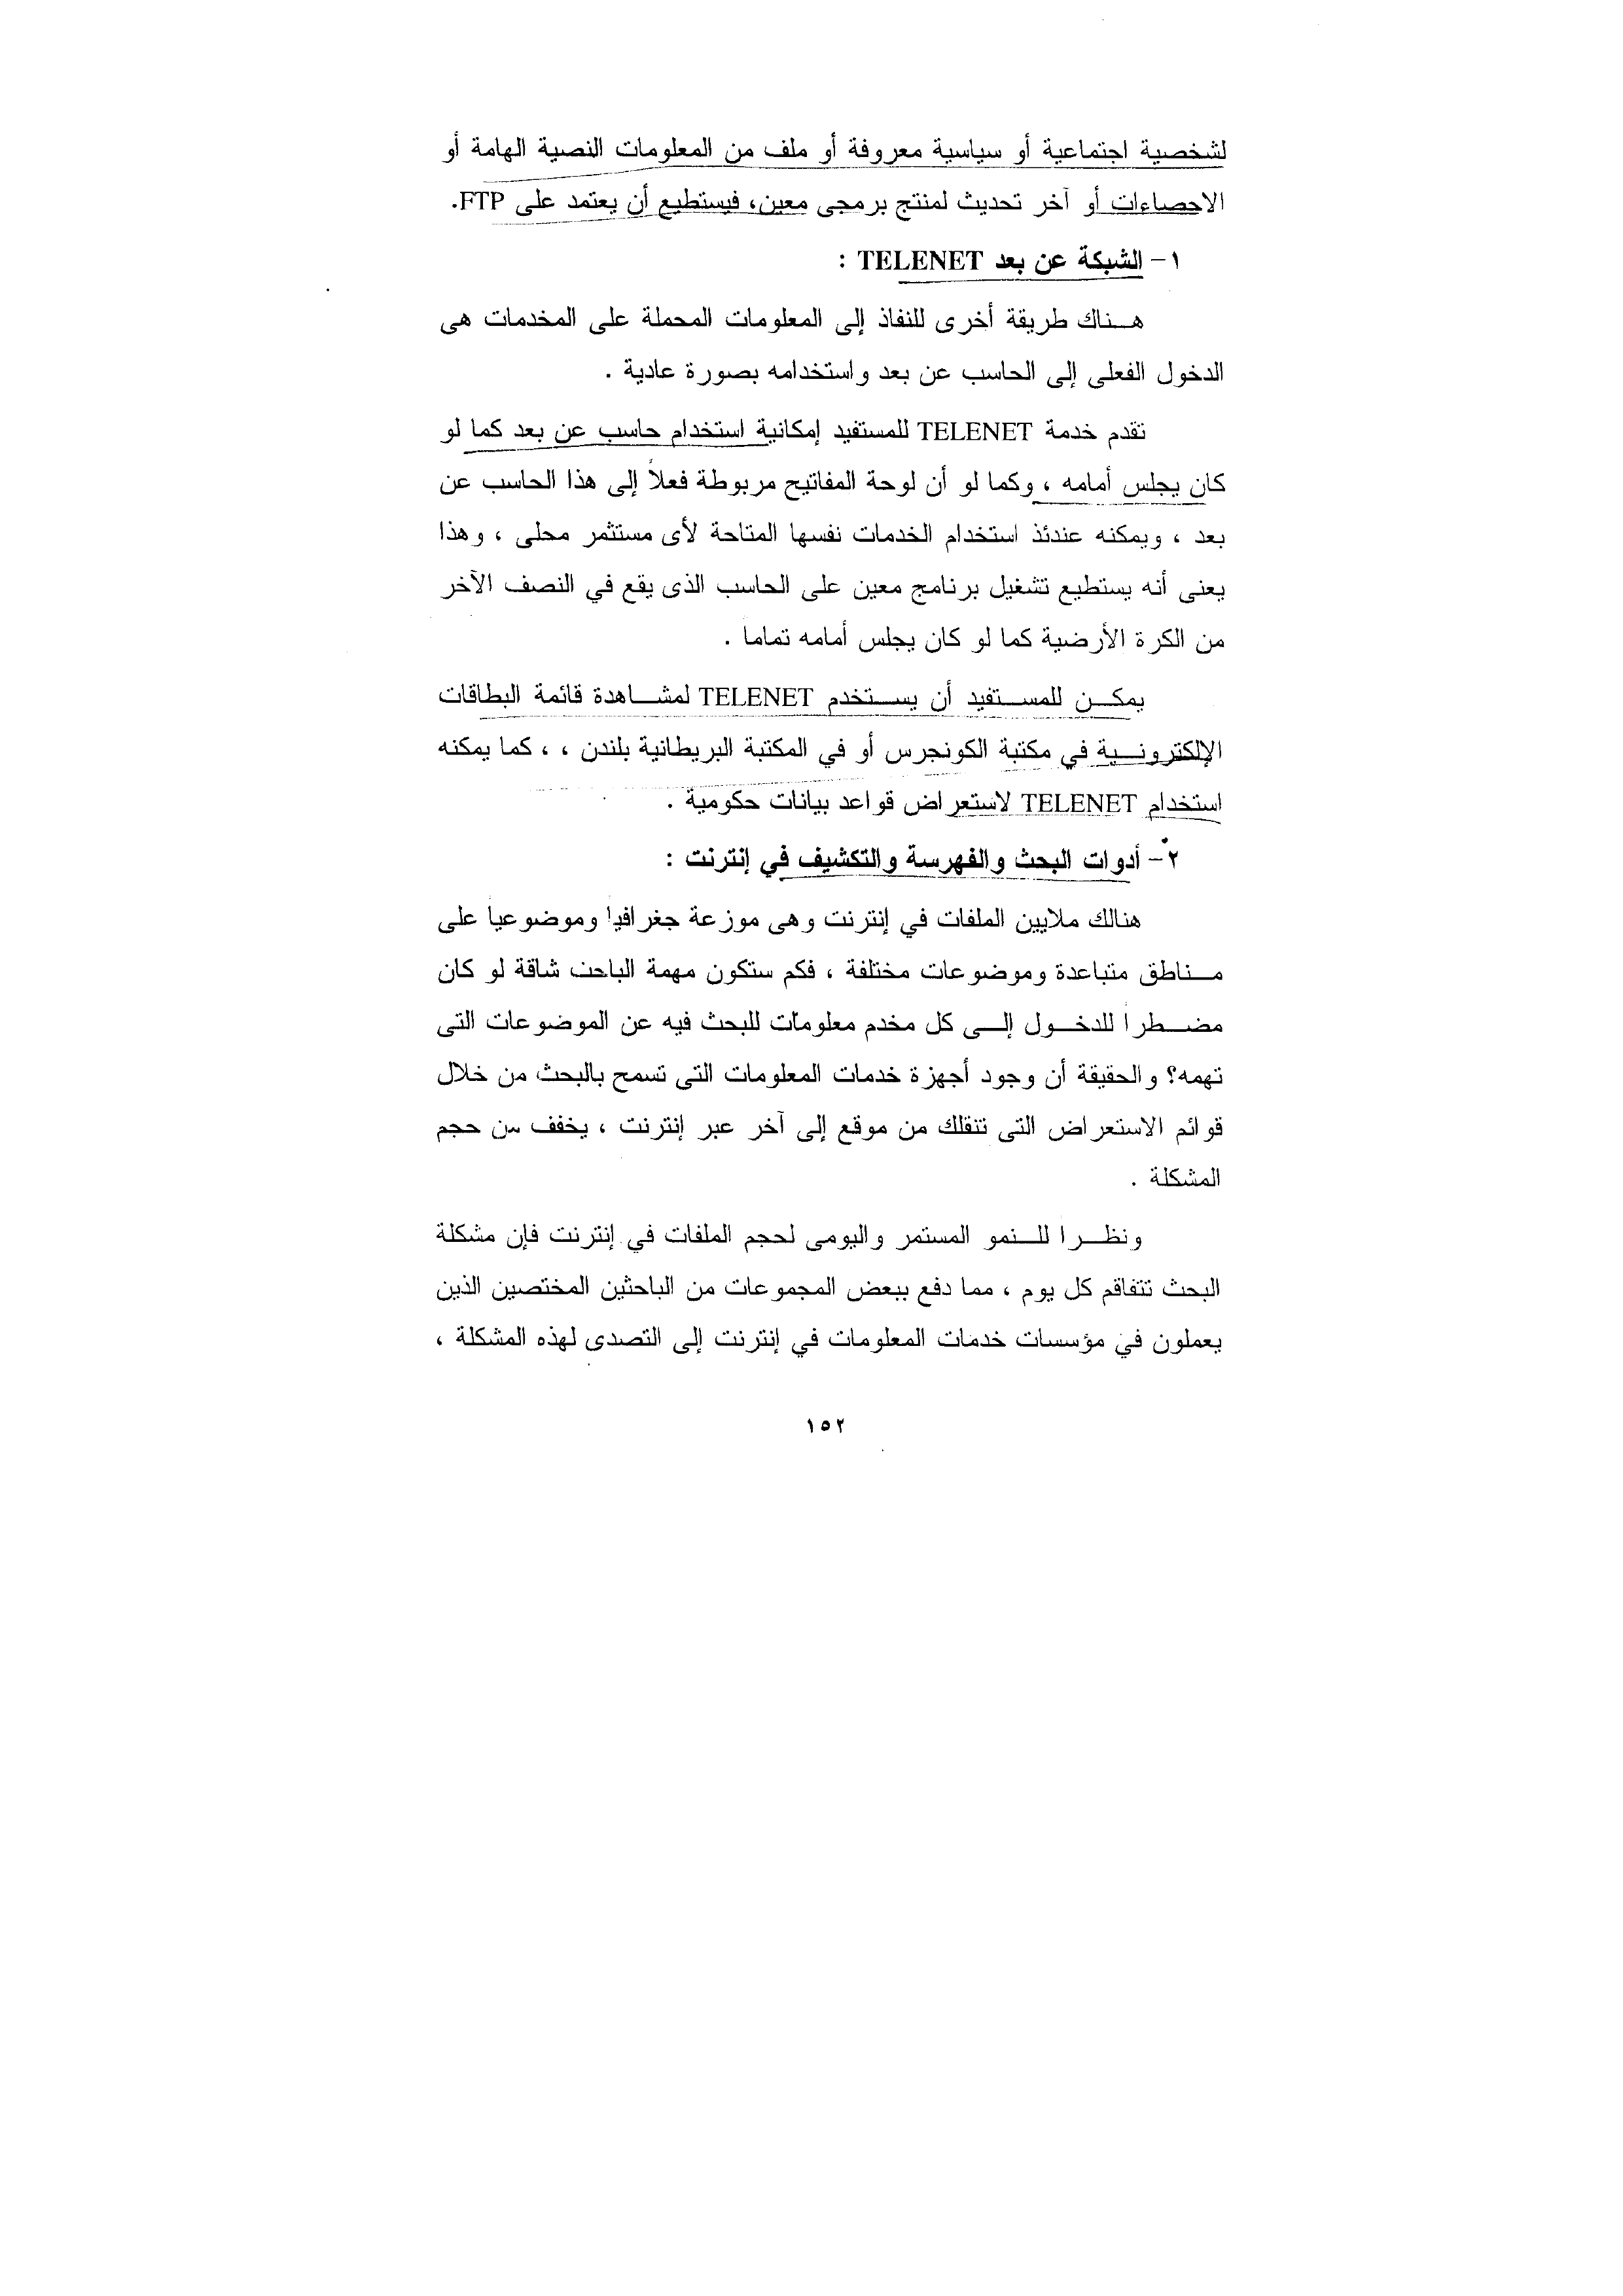 لشخصية اجتماعية أو سياسية معروفة أو ملف من المعلومات النصية الهامة أو
الاحصاءات أو آخر تحديث لمنتج برمجى معين، فيستطيع أن يعتمد على FTP.
١- الشبكة عن بعد TELENET :
هناك طريقة أخرى للنفاذ إلى المعلومات المحملة على المخدمات هى
الدخول الفعلى إلى الحاسب عن بعد واستخدامه بصورة عادية .
تقدم خدمة TELENET للمستفيد إمكانية استخدام حاسب عن بعد كما لو
كان يجلس أمامه ، وكما لو أن لوحة المفاتيح مربوطة فعلاً إلى هذا الحاسب عن
بعد ، ويمكنه عندئذ استخدام الخدمات نفسها المتاحة لأى مستثمر محلى ، وهذا
يعنى أنه يستطيع تشغيل برنامج معين على الحاسب الذى يقع في النصف الآخر
من الكرة الأرضية كما لو كان يجلس أمامه تماما .
يمكن للمستفيد أن يستخدم TELENET لمشاهدة قائمة البطاقات
الإلكترونية في مكتبة الكونجرس أو في المكتبة البريطانية بلندن ، ، كما يمكنه
استخدام TELENET لاستعراض قواعد بيانات حكومية .
٢- أدوات البحث والفهرسة والتكشيف في إنترنت :
هنالك ملايين الملفات في إنترنت وهى موزعة جغرافيا وموضوعيا على
مناطق متباعدة وموضوعات مختلفة ، فكم ستكون مهمة الباحث شاقة لو كان
مضطرا للدخول إلى كل مخدم معلومات للبحث فيه عن الموضوعات التى
تهمه؟ والحقيقة أن وجود أجهزة خدمات المعلومات التى تسمح بالبحث من خلال
قوائم الاستعراض التى تنقلك من موقع إلى آخر عبر إنترنت ، يخفف من حجم
المشكلة .
ونظرا للنمو المستمر واليومى لحجم الملفات في إنترنت فإن مشكلة
البحث تتفاقم كل يوم ، مما دفع ببعض المجموعات من الباحثين المختصين الذين
يعملون في مؤسسات خدمات المعلومات في إنترنت إلى التصدى لهذه المشكلة ،
١٥٢